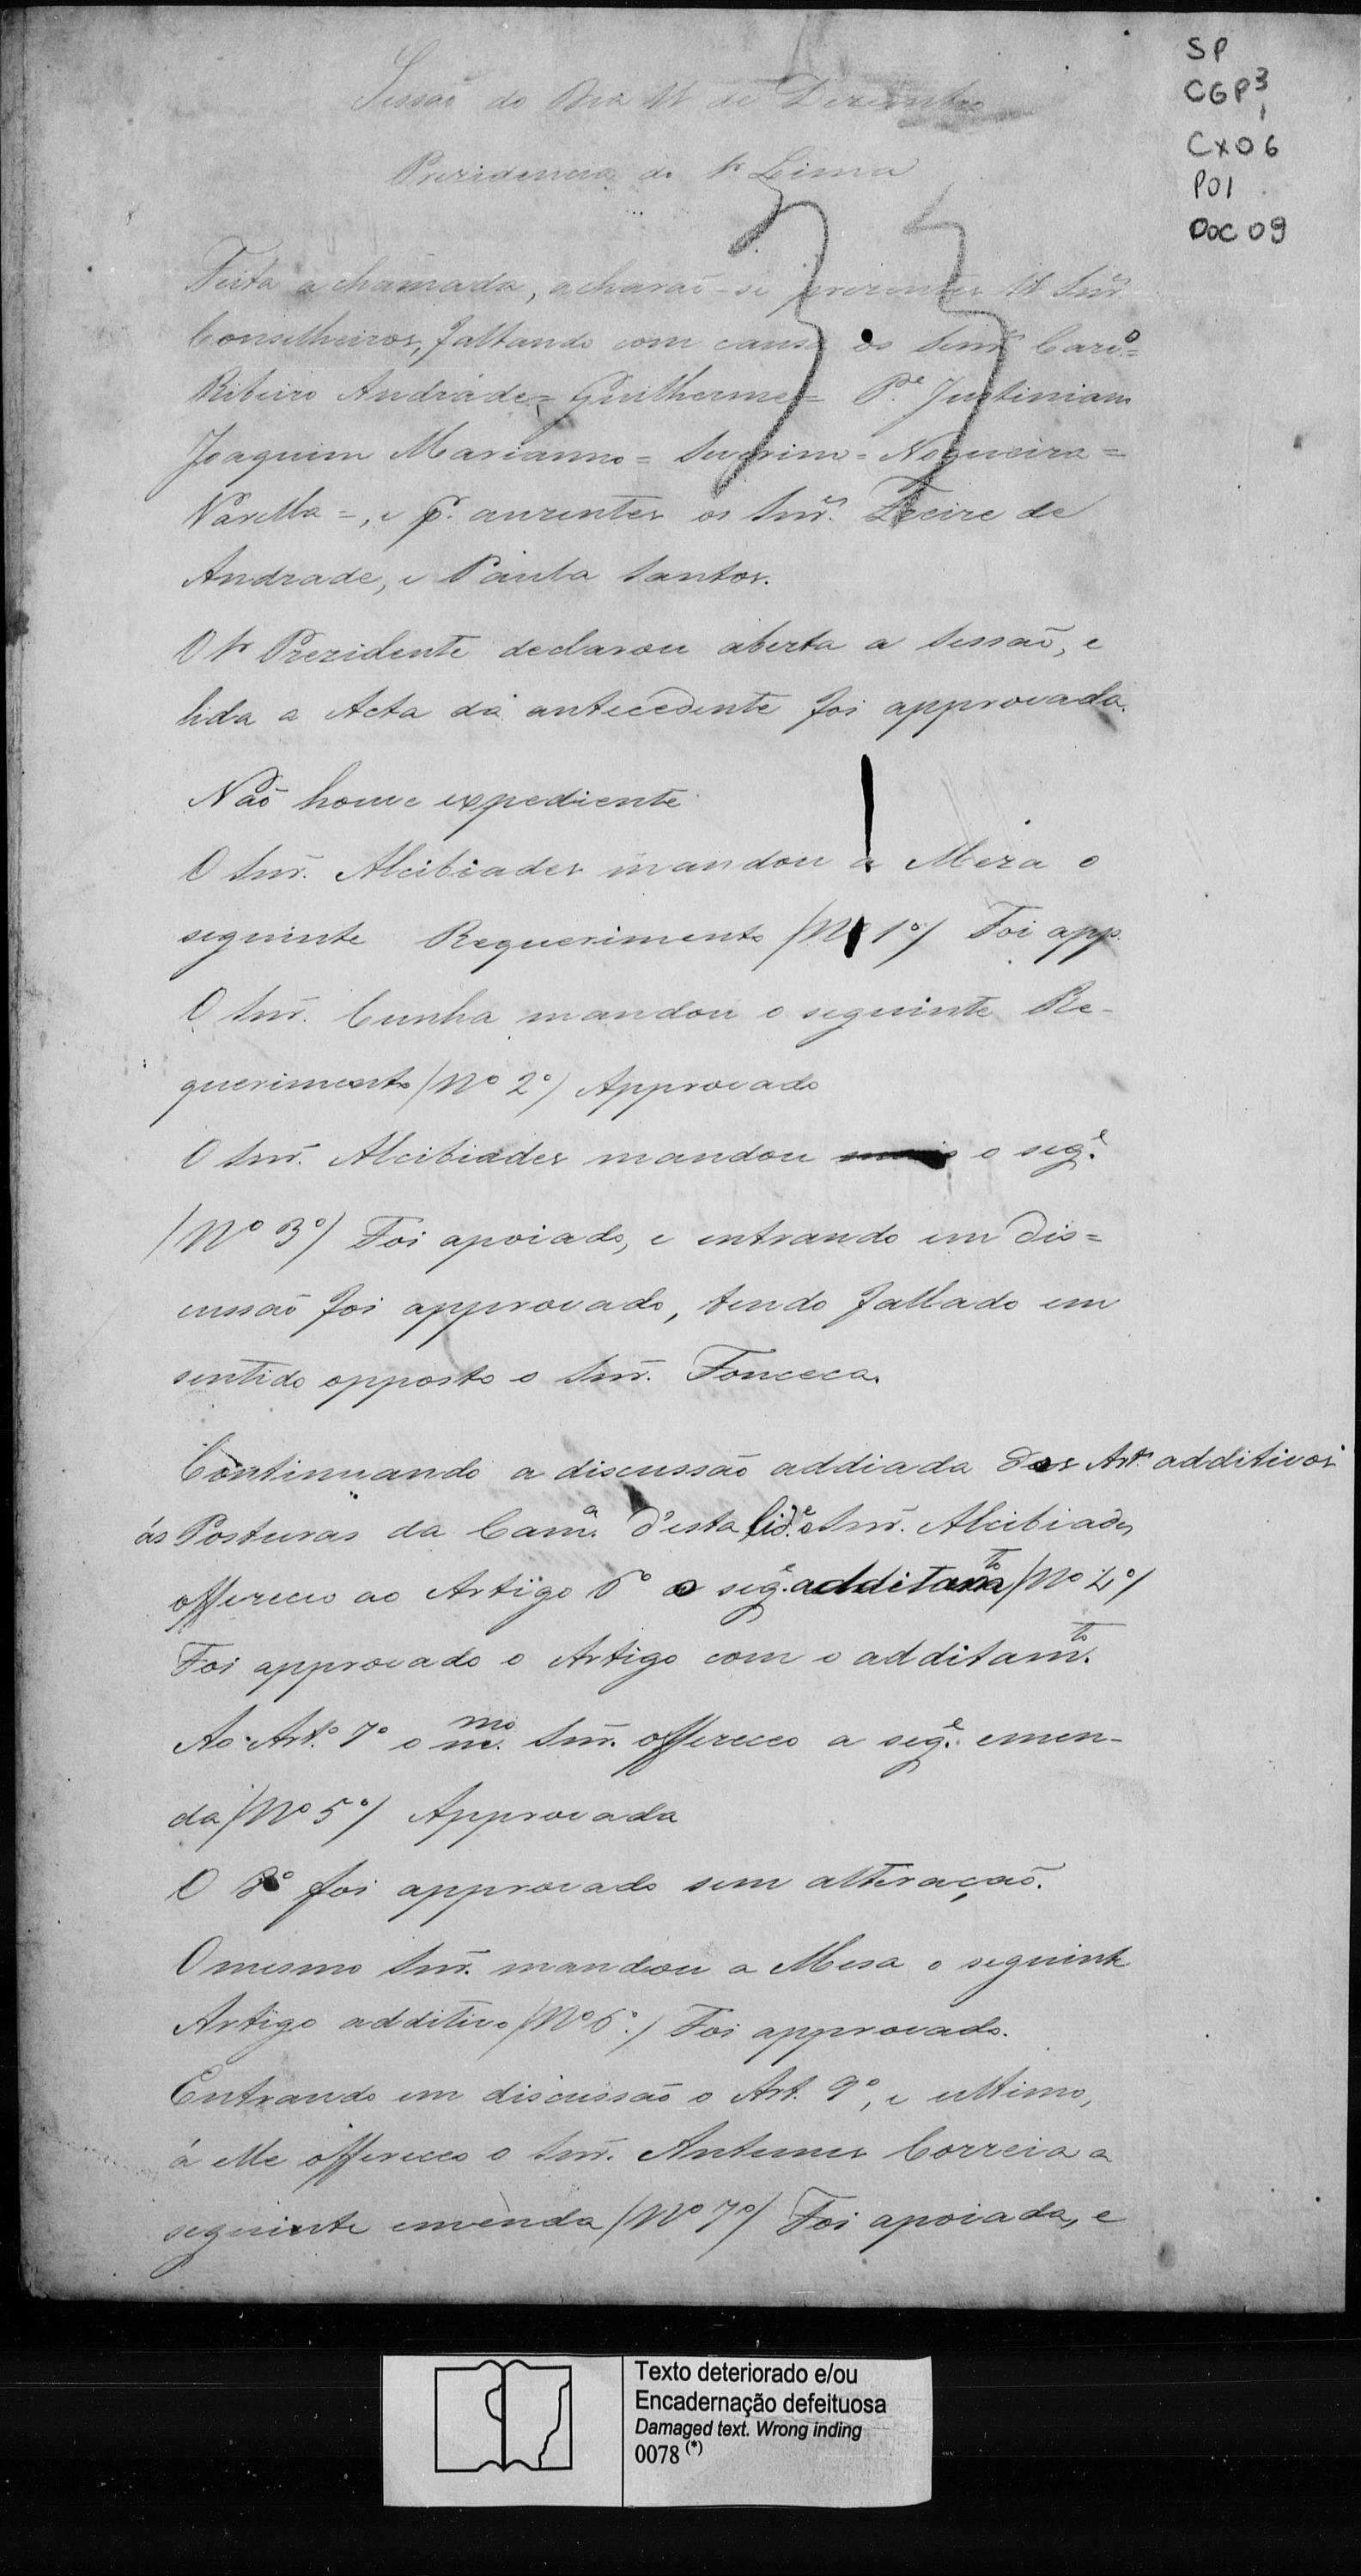 SP
CGP3
Cx06
P01
Doc 09
Sessão do Dia 11 de Dezembro
Prezidencia do Sr Lima
Feita a chamada, acharaõ-se prezentes 11 Snr.es
Conselheiros, faltando com causa os Senr.es Card.o =
Ribeiro Andrade = Guilherme = P.e Justiniano
Joaquim Marianno = Severino = Nogueira =
Varella =, e p. auzentes os Snr.es Freire de
Andrade, e Paula Santos.
O Sr Prezidente declarou aberta a Sessaõ, e
lida a Acta da antecedente foi approvada.
Naõ houve expediente
O Snr. Alcibiades mandou a Meza o
seguinte Requerimento (No 1o) Foi app.
O Snr. Cunha mandou o seguinte Re-
querimento (No 2o) Approvado
O Snr. Alcibiades mandou o seg.e
(No 3o) Foi apoiado, e entrando em dis=
cussaõ foi approvado, tendo fallado em
sentido opposto o Snr. Fonceca.
Continuando a discussaõ addiada dos Art.s additivos
ás Posturas da Cam.a d'esta Cid.e o Snr. Alcibiades
offereceo ao Artigo 6o o seg.e additam.to (No 4o)
Foi approvado o Artigo com o additam.to
Ao Art.o 7o o m.mo Snr. offereceo a seg.e emen-
da (No 5o) Approvada
O 8o foi approvado sem alteraçaõ.
O mesmo Snr. mandou a Mesa o seguinte
Artigo additivo (No 6o) Foi approvado.
Entrando em discussaõ o Art. 9o, e ultimo,
á elle offereceo o Snr. Antunes Correia a
seguinte emenda (No 7o) Foi apoiada, e
Texto deteriorado e/ou
Encadernação defeituosa
Damaged text. Wrong inding
0078 (*)